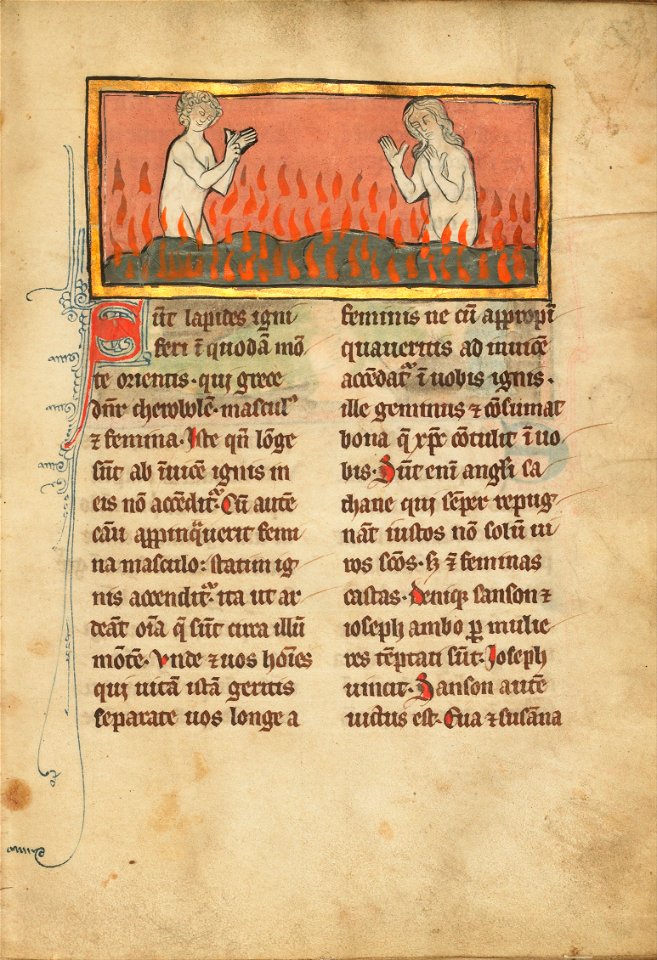 Sūt lapides igni
feri ī quodā mō
te orientis·qui grece
dn̄r cherobolē·mascul᷒
⁊ femina·Iste qn̄ lōge
sūt ab īuicē ignis in
eis nō accēdit᷑·Cū autē
appinq̈uerit femi
na masculo: statim ig
nis accendit᷑·ita ut ar
deāt oīa q̄ sūt circa illū
mōtē·Vnde ⁊ uos hoīes
qui uitā istā geritis
separate uos longe a
feminis ne cū appropī
quaueritis ad inuicē
accēdat᷑ ī uobis ignis·
ille geminus ⁊ cōsumat
bona q̄ xp̄c cōtulit ī uo
bis·Sūt enī angli sa
thane qui sēper repug
nāt iustos nō solū ui
ros scōs·s̄ ⁊ feminas
castas·Deniq̢ sanson ⁊
ioseph ambo ꝑ mulie
res tēptati sūt·Ioseph
uincit·Sanson autē
uictus est·Eua ⁊ susāna